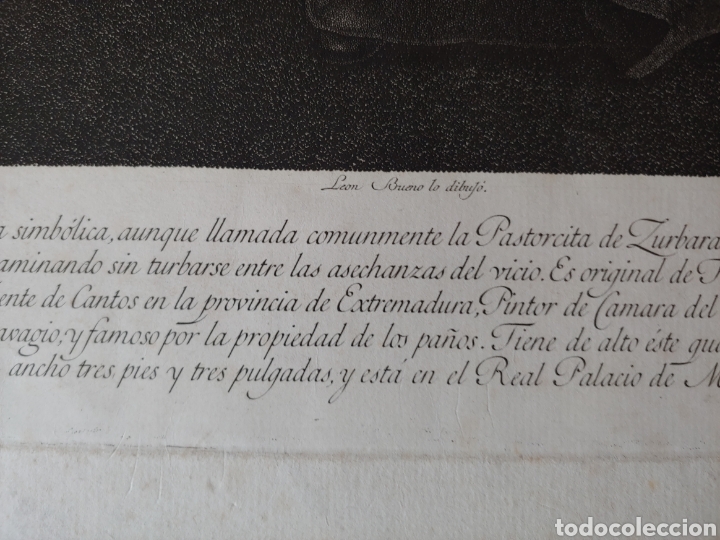 Leon Bueno lo dibujó.
simbólica, aunque llamada comunmente la Pastorcita de Zurbara
aminando sin turbarse entre las asechanzas del vicio. Es original de
ente de Cantos en la provincia de Extremadura, Pintor de Camara del
avagio, y famoso por la propiedad de los paños. Tiene de alto éste
ancho tres pies y tres pulgadas, y está en el Real Palacio de M
todocoleccion